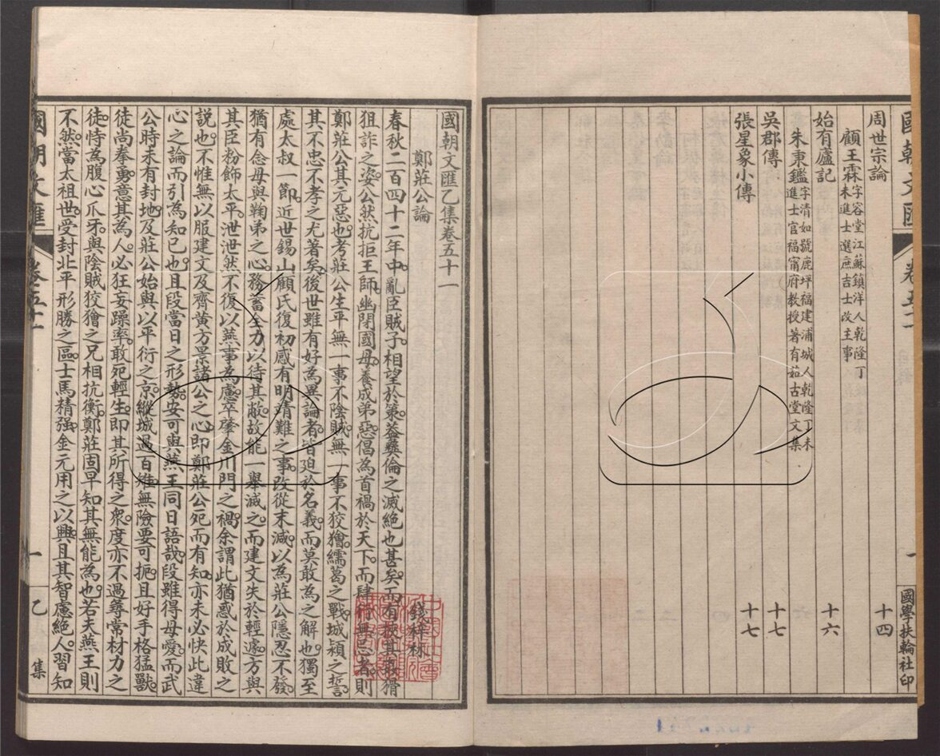 國朝文匯
卷五十一
周世宗論
十四
顧王霖字容堂江蘇鎮洋人乾隆丁未進士選庶吉士改主事
始有廬記
十六
朱秉鑑字清如號鹿坪福建浦城人乾隆丁未進士官福甯府教授著有茹古堂文集
吳郡傳
十七
張星象小傳
十七
一
國學扶輪社印
國朝文匯乙集卷五十一
鄭莊公論
錢梓林
春秋二百四十二年中亂臣賊子相望於策葢彝倫之滅絕也甚矣而有挾其戮猾
狙詐之姿公然抗拒王師幽閉國母養成弟惡倡為首禍於天下而肆行無忌者則
鄭莊公其元惡也考莊公生平無一事不陰賊無一事不狡獪繻葛之戰城潁之誓
其不忠不孝之尤著矣後世雖有好為異論者皆迫於名義而莫敢為之解也獨至
處太叔一節近世錫山顧氏復初感有明靖難之事改從末減以為莊公隱忍不發
猶有念母與鞠弟之心務蓄全力以待其敝故能一舉滅之而建文失於輕遽方與
其臣粉飾太平泄泄然不復以燕事為慮卒肇金川門之禍余謂此猶惑於成敗之
說也不惟無以服建文及齊黃方景諸公之心即鄭莊公死而有知亦未必快此違
心之論而引為知已也且段當日之形勢安可與燕王同日語哉段雖得母愛而武
公時未有封地及莊公始與以平衍之京縱城過百雉無險要可扼且好手格猛獸
徒尚拳勇意其為人必狂妄躁率敢死輕生即其所得之衆度亦不過尋常材力之
徒恃為腹心爪牙與陰賊狡獪之兄相抗衡鄭莊固早知其無能為也若夫燕王則
不然當太祖世受封北平形勝之區士馬精强金元用之以興且其智慮絕人習知
國朝文匯
卷五十一
一
乙
集